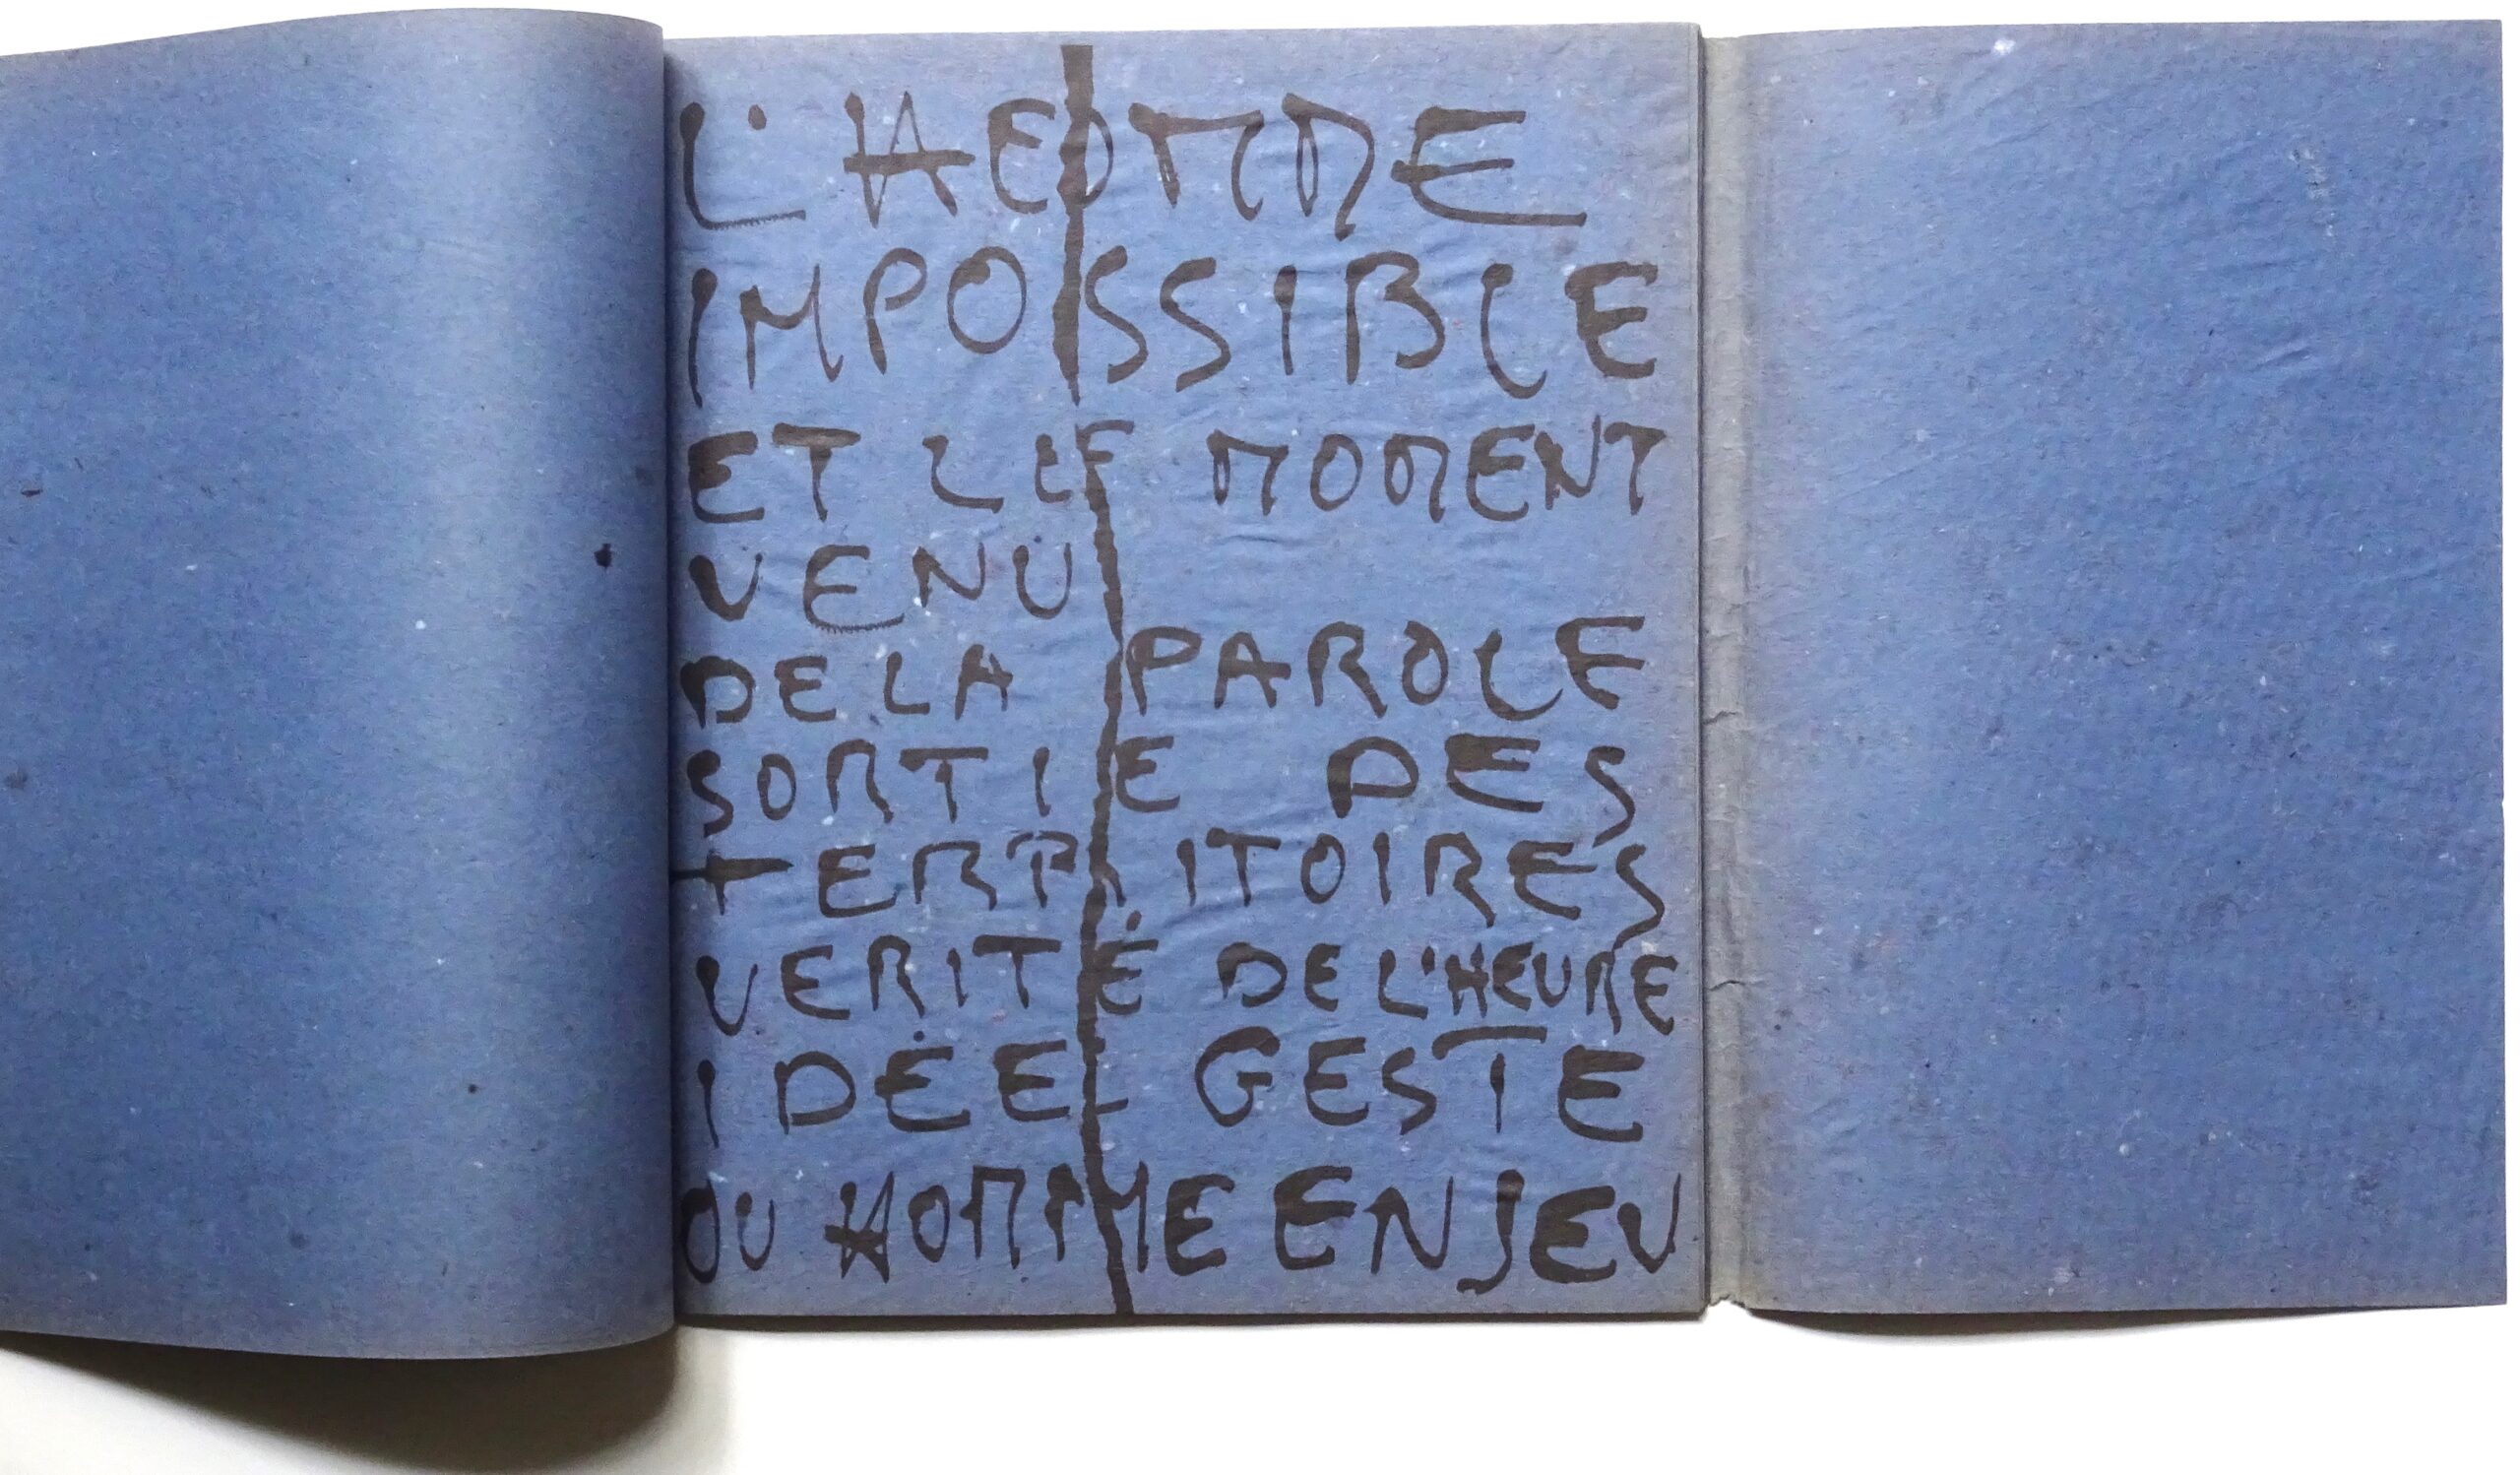 L'HEOMME
IMPOSSIBLE
ET LE MOMENT
VENU
DE LA PAROLE
SORTIE DES
TERRITOIRES
VERITÉ DE L'HEURE
IDÉE GESTE
OU HOMME ENJEU